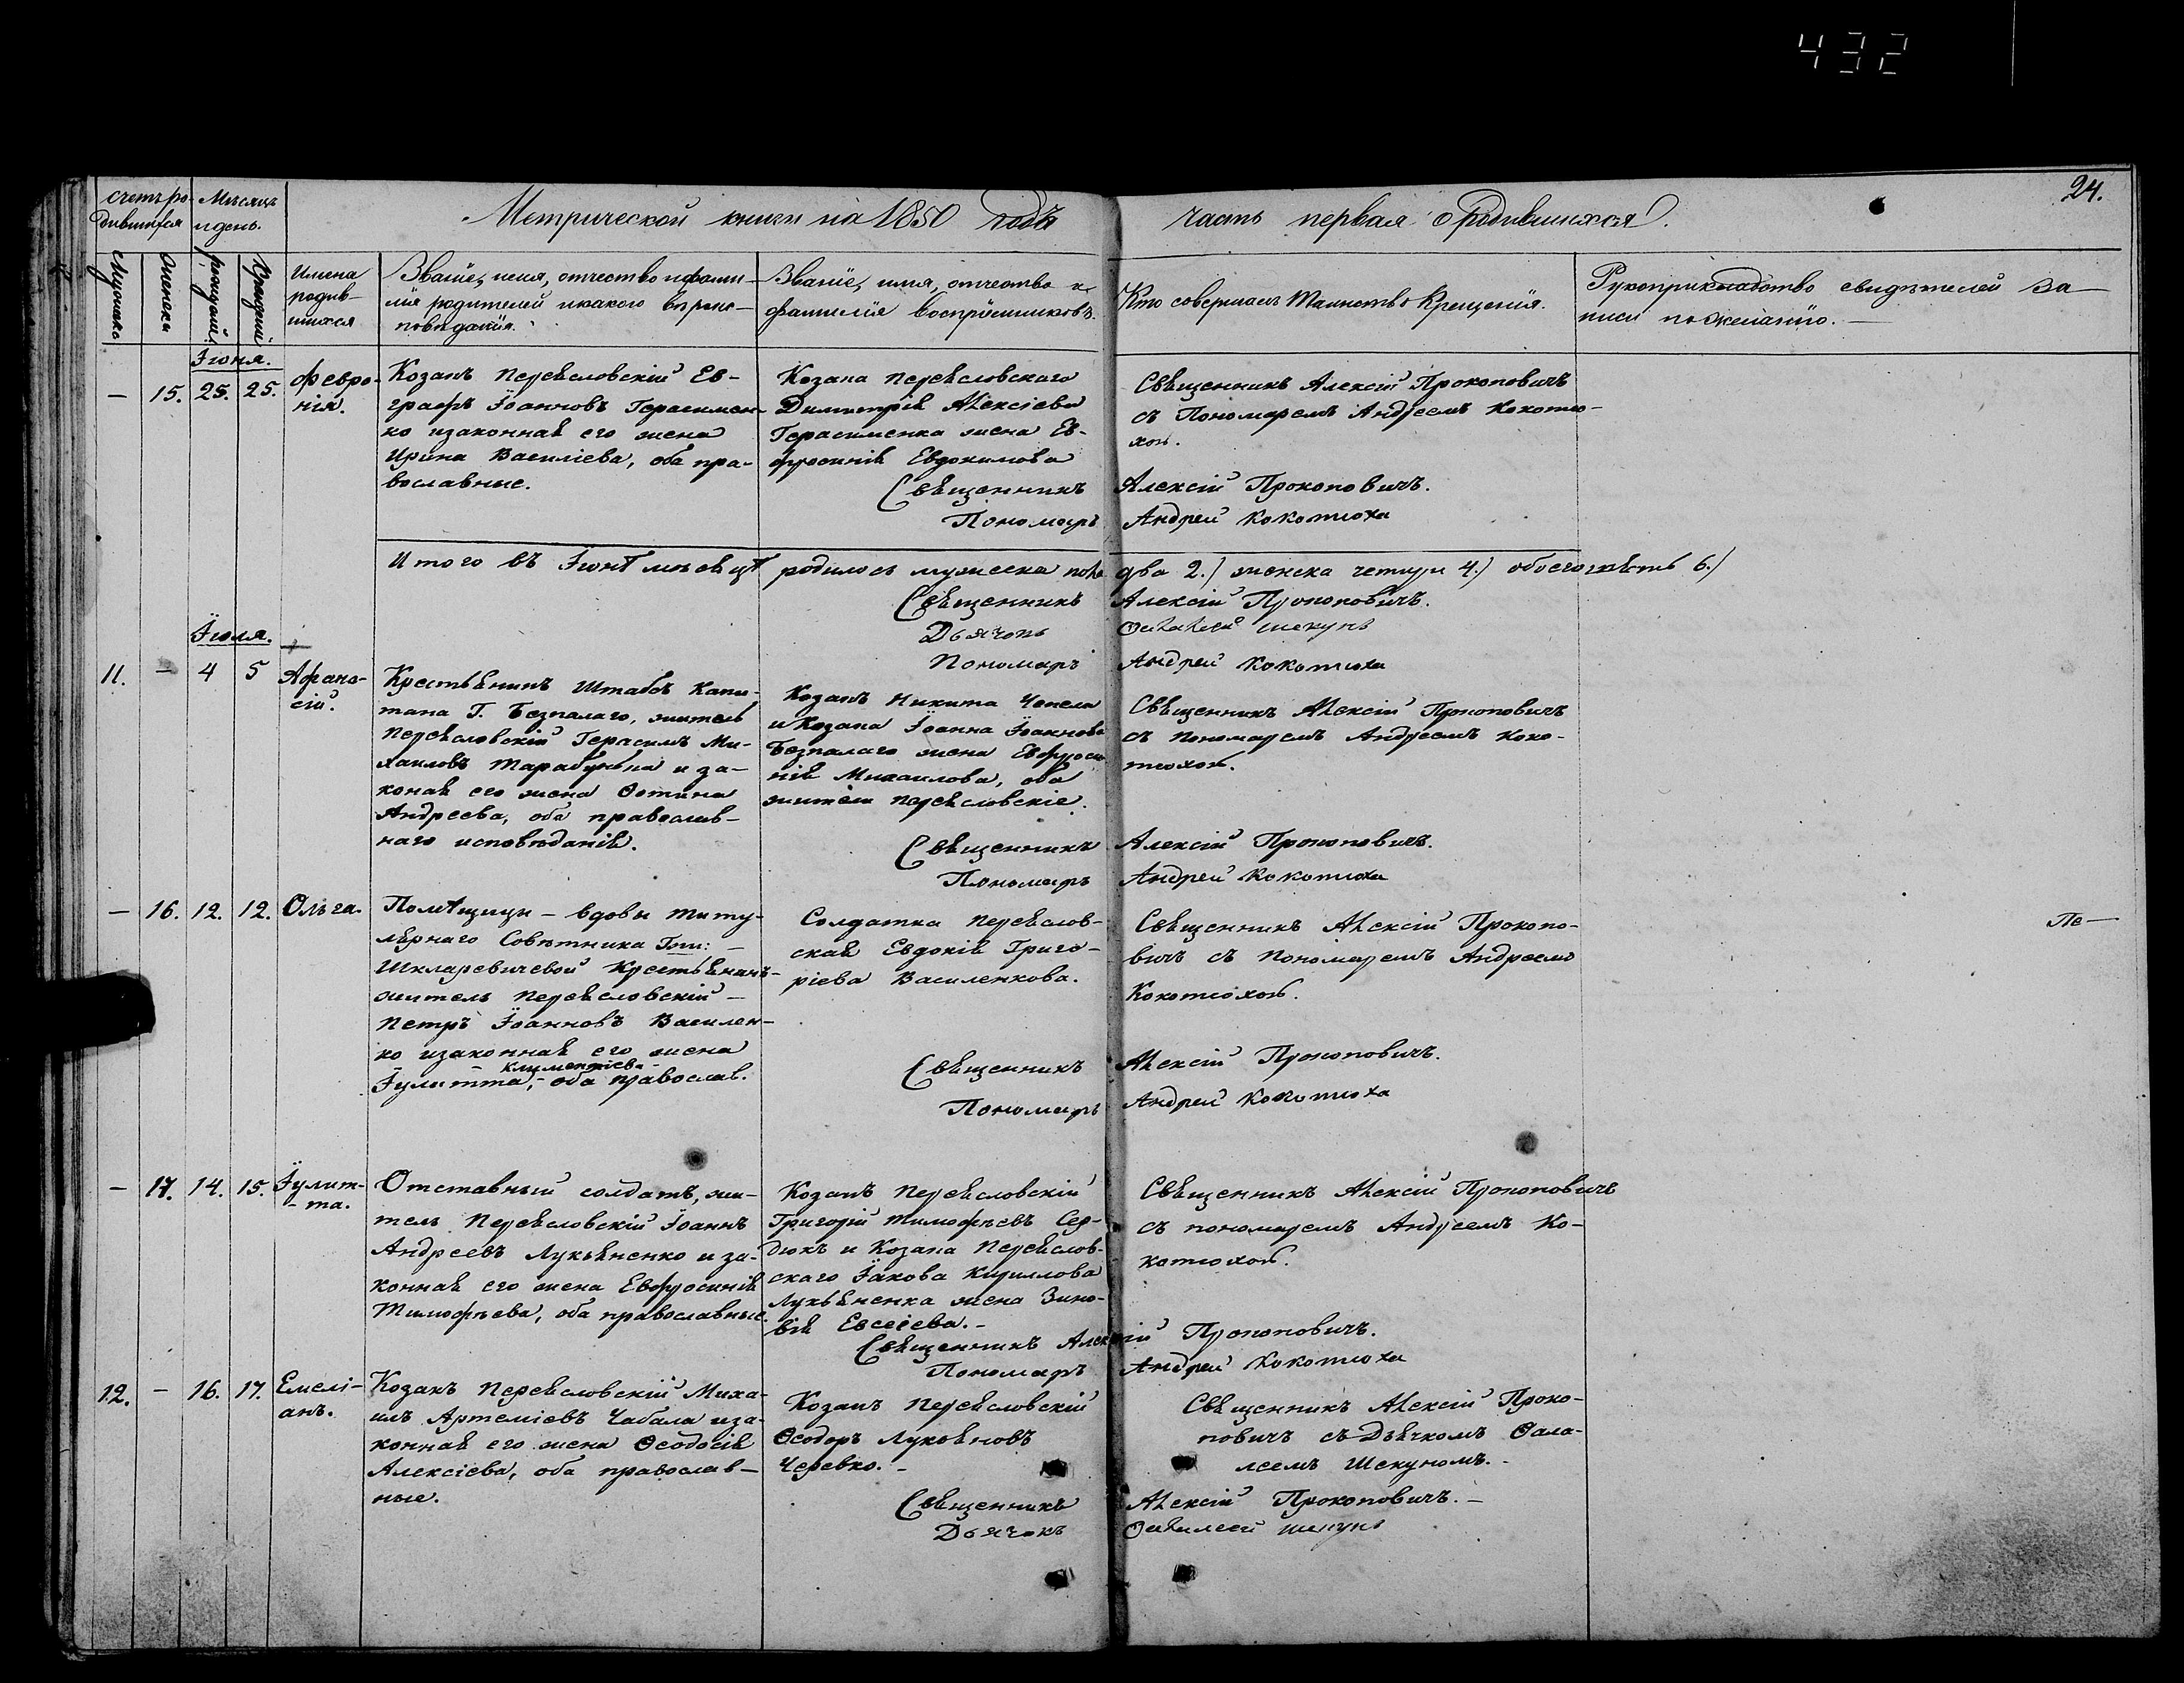 432
24.
счетъ ро-
дившихся
Мѣсяцъ
и день.
Метрической книги на 1850 годъ
часть первая о родившихся.
Мужеска
женска
рожденія
крещенія
Имена
родив-
шихся
Званіе, имя, отчество и фами-
лія родителей и какого вѣроис-
повѣданія.
Званіе, имя, отчество и
фамилія воспріемниковъ.
Кто совершалъ Таинство Крещенія.
Рукоприкладство свидѣтелей за-
писи по желанію.
Іюня.
— 15. 25. 25.
Февро-
нія.
Козакъ Переясловскій Ев-
графъ Іоанновъ Герасимен-
ко и законная его жена
Ирина Василіева, оба пра-
вославные.
Козака Переясловскаго
Димитрія Алексіева
Герасименка жена Ев-
фросинія Евдокимова
Священникъ Алексій Прокоповичъ
съ Пономаремъ Андреемъ Кокотю-
хою.
Священникъ Алексій Прокоповичъ.
Пономарь Андрей Кокотюха
Итого въ Іюнѣ мѣсяцѣ родилось мужеска пола два 2./ женска четыри 4./ обоего шѣсть 6./
Священникъ Алексій Прокоповичъ.
Дьячокъ Фалалей Шекунъ
Пономарь Андрей Кокотюха
Іюля.
11. — 4 5
Афана-
сій.
Крестьянинъ Штабсъ Капи-
тана Г. Безпалаго, житель
Переясловскій Герасимъ Ми-
хаиловъ Тарабунька и за-
коная его жена Фотина
Андреева, оба православ-
наго исповѣданія.
Козакъ Никита Чепела
и Козака Іоанна Іоаннова
Безпалаго жена Евфроси-
нія Михаилова, оба
жители Переясловскіе.
Священникъ Алексій Прокоповичъ
съ Пономаремъ Андреемъ Коко-
тюхою.
Священникъ Алексій Прокоповичъ.
Пономарь Андрей Кокотюха
— 16. 12. 12. Ольга.
Помѣщицы — вдовы титу-
лярнаго Совѣтника Гпи: —
Шкляревичевой Крестьянинъ-
житель Переясловскій —
Петръ Іоанновъ Василен-
ко и законная его жена
Климентіева
Іулитта, — оба православ.
Солдатка Переяслов-
ская Евдокія Григо-
ріева Василенкова.
Священникъ Алексій Прокопо-
вичъ съ Пономаремъ Андреемъ
Кокотюхою.
Пе—
Священникъ Алексій Прокоповичъ.
Пономарь Андрей Кокотюха
— 17. 14. 15.
Іулит-
та.
Отставный солдатъ, жи-
тель Переясловскій Іоаннъ
Андреевъ Лукьяненко и за-
конная его жена Евфросинія
Тимофѣева, оба православные.
Козакъ Переясловскій
Григорій Тимофѣевъ Сер-
дюкъ и Козака Переяслов-
скаго Іакова Кириллова
Лукьяненка жена Зино-
вія Евсеіева. —
Священникъ Алексій Прокоповичъ
съ пономаремъ Андреемъ Ко-
котюхою.
Священникъ Алексій Прокоповичъ.
Пономарь Андрей Кокотюха
12. — 16. 17.
Емелі-
анъ.
Козакъ Переясловскій Миха-
илъ Артеміевъ Чабала и за-
конная его жена Ѳеодосія
Алексіева, оба православ-
ные.
Козакъ Переясловскій
Ѳеодоръ Лукьяновъ
Черевко. —
Священникъ Алексій Проко-
повичъ съ Дьячкомъ Фала-
леемъ Шекуномъ. —
Священникъ Алексій Прокоповичъ. —
Дьячокъ Фалалей Шекунъ